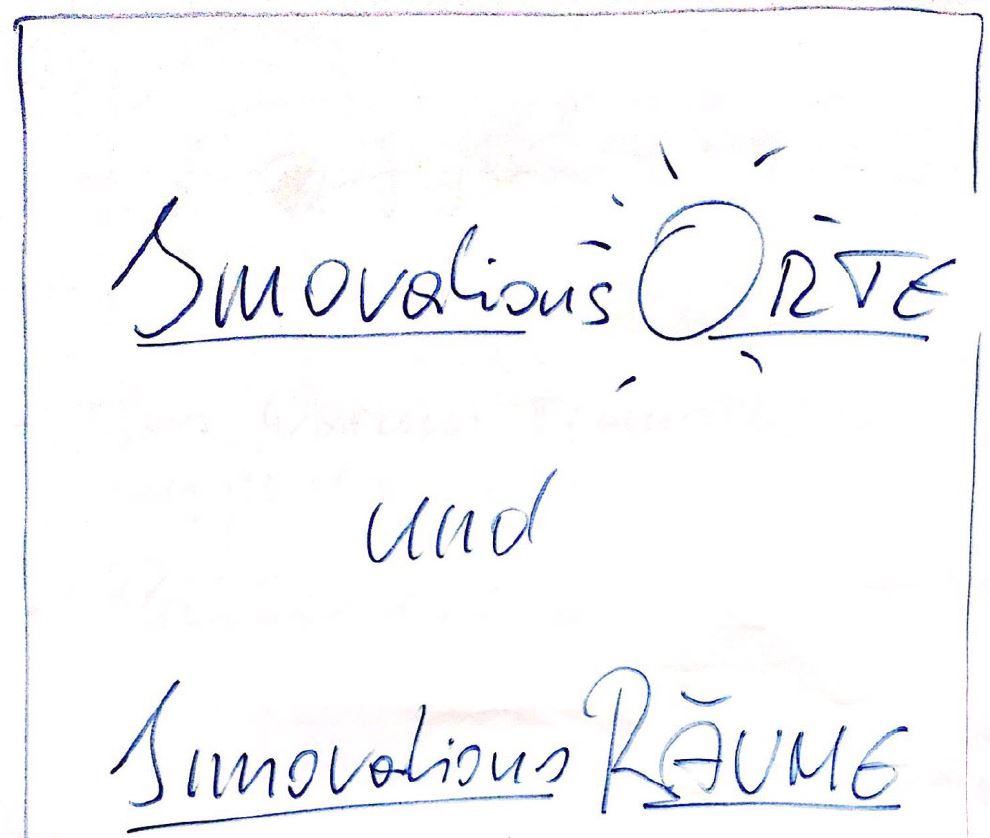 InnovationsORTE
und
InnovationsRÄUME